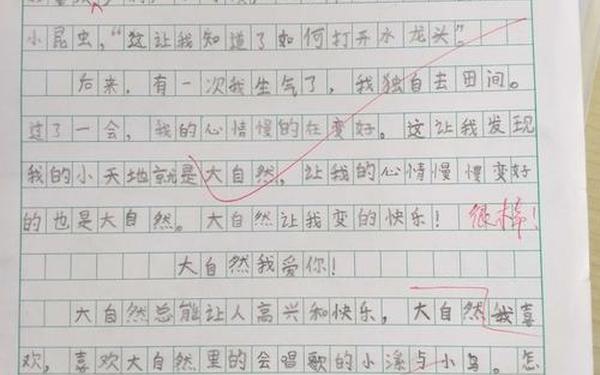 小昆虫,“这让我知道了如何打开水龙头”。
后来,有一次我生气了,我独自去田间。
过了一会,我的心情慢的在变好。这让我发现
我的小天地就是大自然,让我的心情慢慢变好
的也是大自然。大自然让我变的快乐!很棒!
大自然我爱你!
大自然总能让人高兴和快乐,大自然我喜
欢,喜欢大自然里的会唱歌的小溪与小鸟。怎